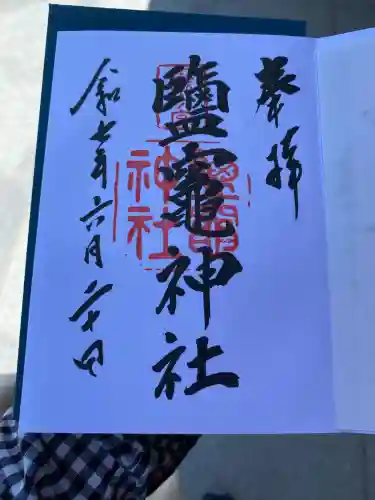 奉拝
鹽竈神社
令和七年六月二十日
神社